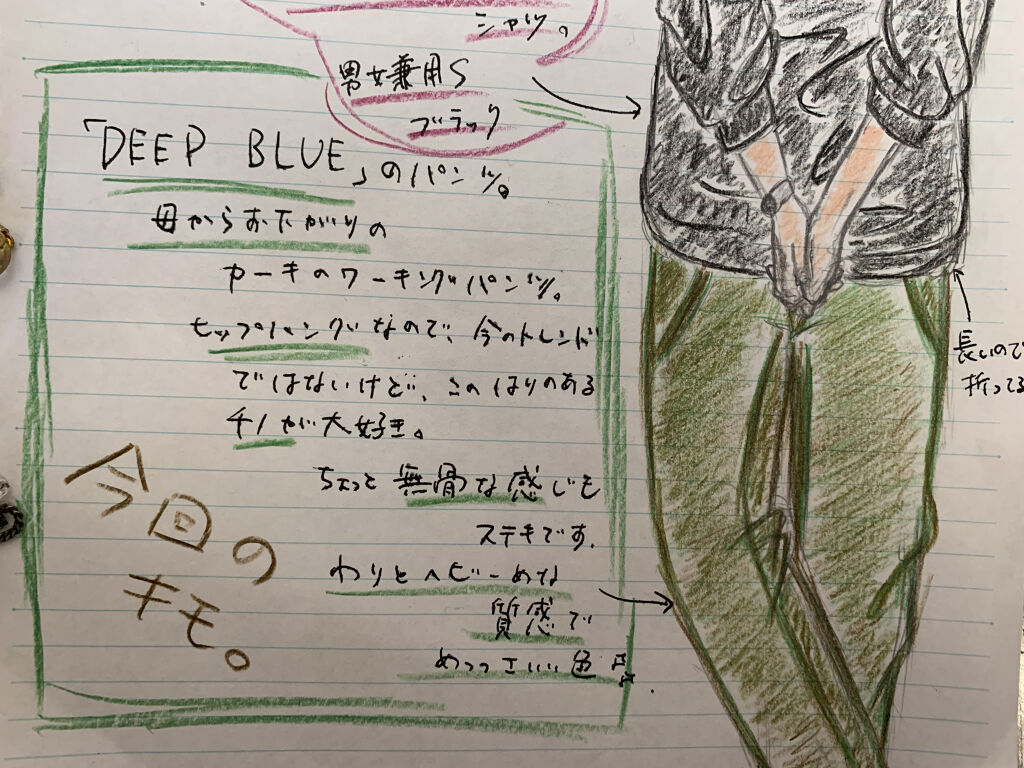 シャツ。
男女兼用S
ブラック
「DEEP BLUE」のパンツ。
母からおたがりの
カーキのワーキングパンツ。
ヒップハングなので、今のトレンド
ではないけど、このはりのある
チノが大好き。
ちょっと無骨な感じも
ステキです。
わりとヘビーめな
質感で
めっっさいい色
今回の
キモ。
長いので
折ってる